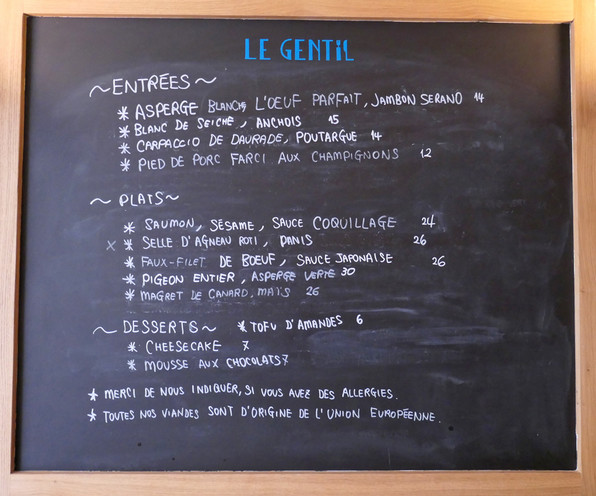 LE GENTIL
~ ENTRÉES ~
* ASPERGE BLANCHE L'OEUF PARFAIT, JAMBON SERANO 14
* BLANC DE SEICHE, ANCHOIS 15
* CARPACCIO DE DAURADE, POUTARGUE 14
* PIED DE PORC FARCI AUX CHAMPIGNONS 12
~ PLATS ~
* SAUMON, SÉSAME, SAUCE COQUILLAGE 24
x * SELLE D'AGNEAU ROTI, PANIS 26
* FAUX-FILET DE BOEUF, SAUCE JAPONAISE 26
* PIGEON ENTIER, ASPERGE VERTE 30
* MAGRET DE CANARD, MAÏS 26
~ DESSERTS ~ * TOFU D'AMANDES 6
* CHEESECAKE 7
* MOUSSE AUX CHOCOLATS 7
* MERCI DE NOUS INDIQUER, SI VOUS AVEZ DES ALLERGIES.
* TOUTES NOS VIANDES SONT D'ORIGINE DE L'UNION EUROPÉENNE.